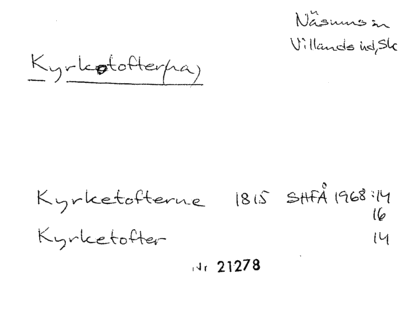 Näsums sn
Villands hd, Sk
Kyrketofter(na)
Kyrketofterne 1815 SHFÅ 1968:14
16
Kyrketofter 14
Nr 21278